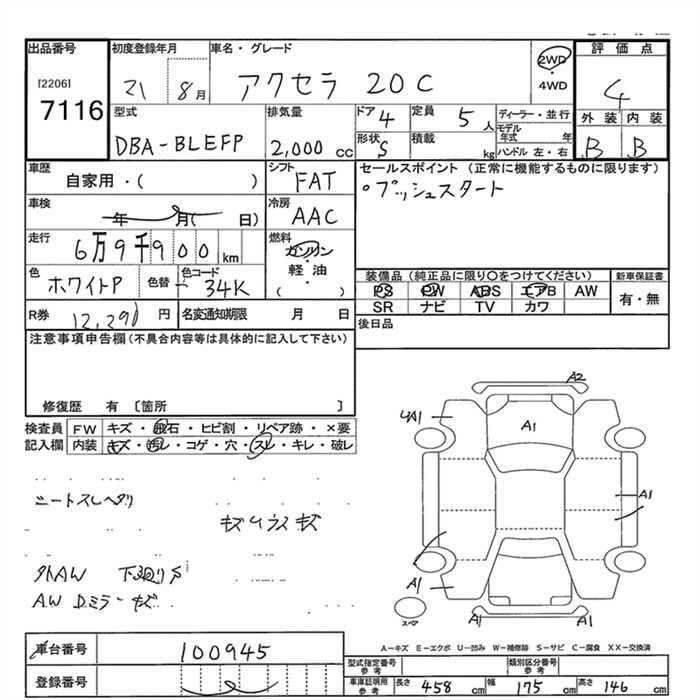 出品番号 初度登録年月 車名・グレード 評価点
[2206] 7116 21 8月 アクセラ 20C 2WD・4WD 4
型式 排気量 ドア 4 定員 5人 ディーラー・並行 外装 内装
DBA-BLEFP 2,000cc 形状 S 積載 kg モデル年式 年 B B
ハンドル 左・右
車歴 自家用・( ) シフト FAT セールスポイント (正常に機能するものに限ります)
車検 年 月( 日) 冷房 AAC 。プッシュスタート
走行 6万9千900km 燃料 ガソリン・軽油・( )
色 ホワイトP 色替 色コード 34K 装備品(純正品に限り○をつけてください) 新車保証書
PS PW ABS エアB AW 有・無
SR ナビ TV カワ
R券 12,290円 名変通知期限 月 日
後日品
注意事項申告欄(不具合内容等は具体的に記入して下さい)
修復歴 有 〔箇所 〕
検査員 FW キズ・飛石・ヒビ割・リペア跡・×要
記入欄 内装 キズ・汚レ・コゲ・穴・スレ・キレ・破レ
A2
A1
A1
A1
シートスレヘタリ
外AW 下廻りS
A.W D.ミラーキズ
A1
A1 A1
スペア
A-キズ E-エクボ U-凹み W-補修跡 S-サビ C-腐食 XX-交換済
車台番号 100945
登録番号
型式指定番号 参考 類別区分番号 参考
車庫証明用 参考 長さ 458cm 幅 175cm 高さ 146cm